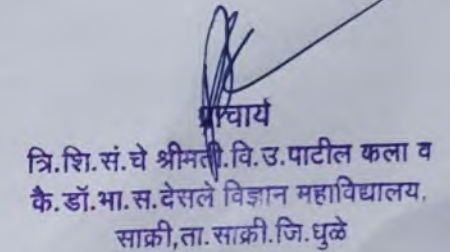 प्राचार्य
त्रि.शि.सं.चे श्रीमती.वि.उ.पाटील कला व
कै.डॉ.भा.स.देसले विज्ञान महाविद्यालय,
साक्री,ता.साक्री.जि.धुळे